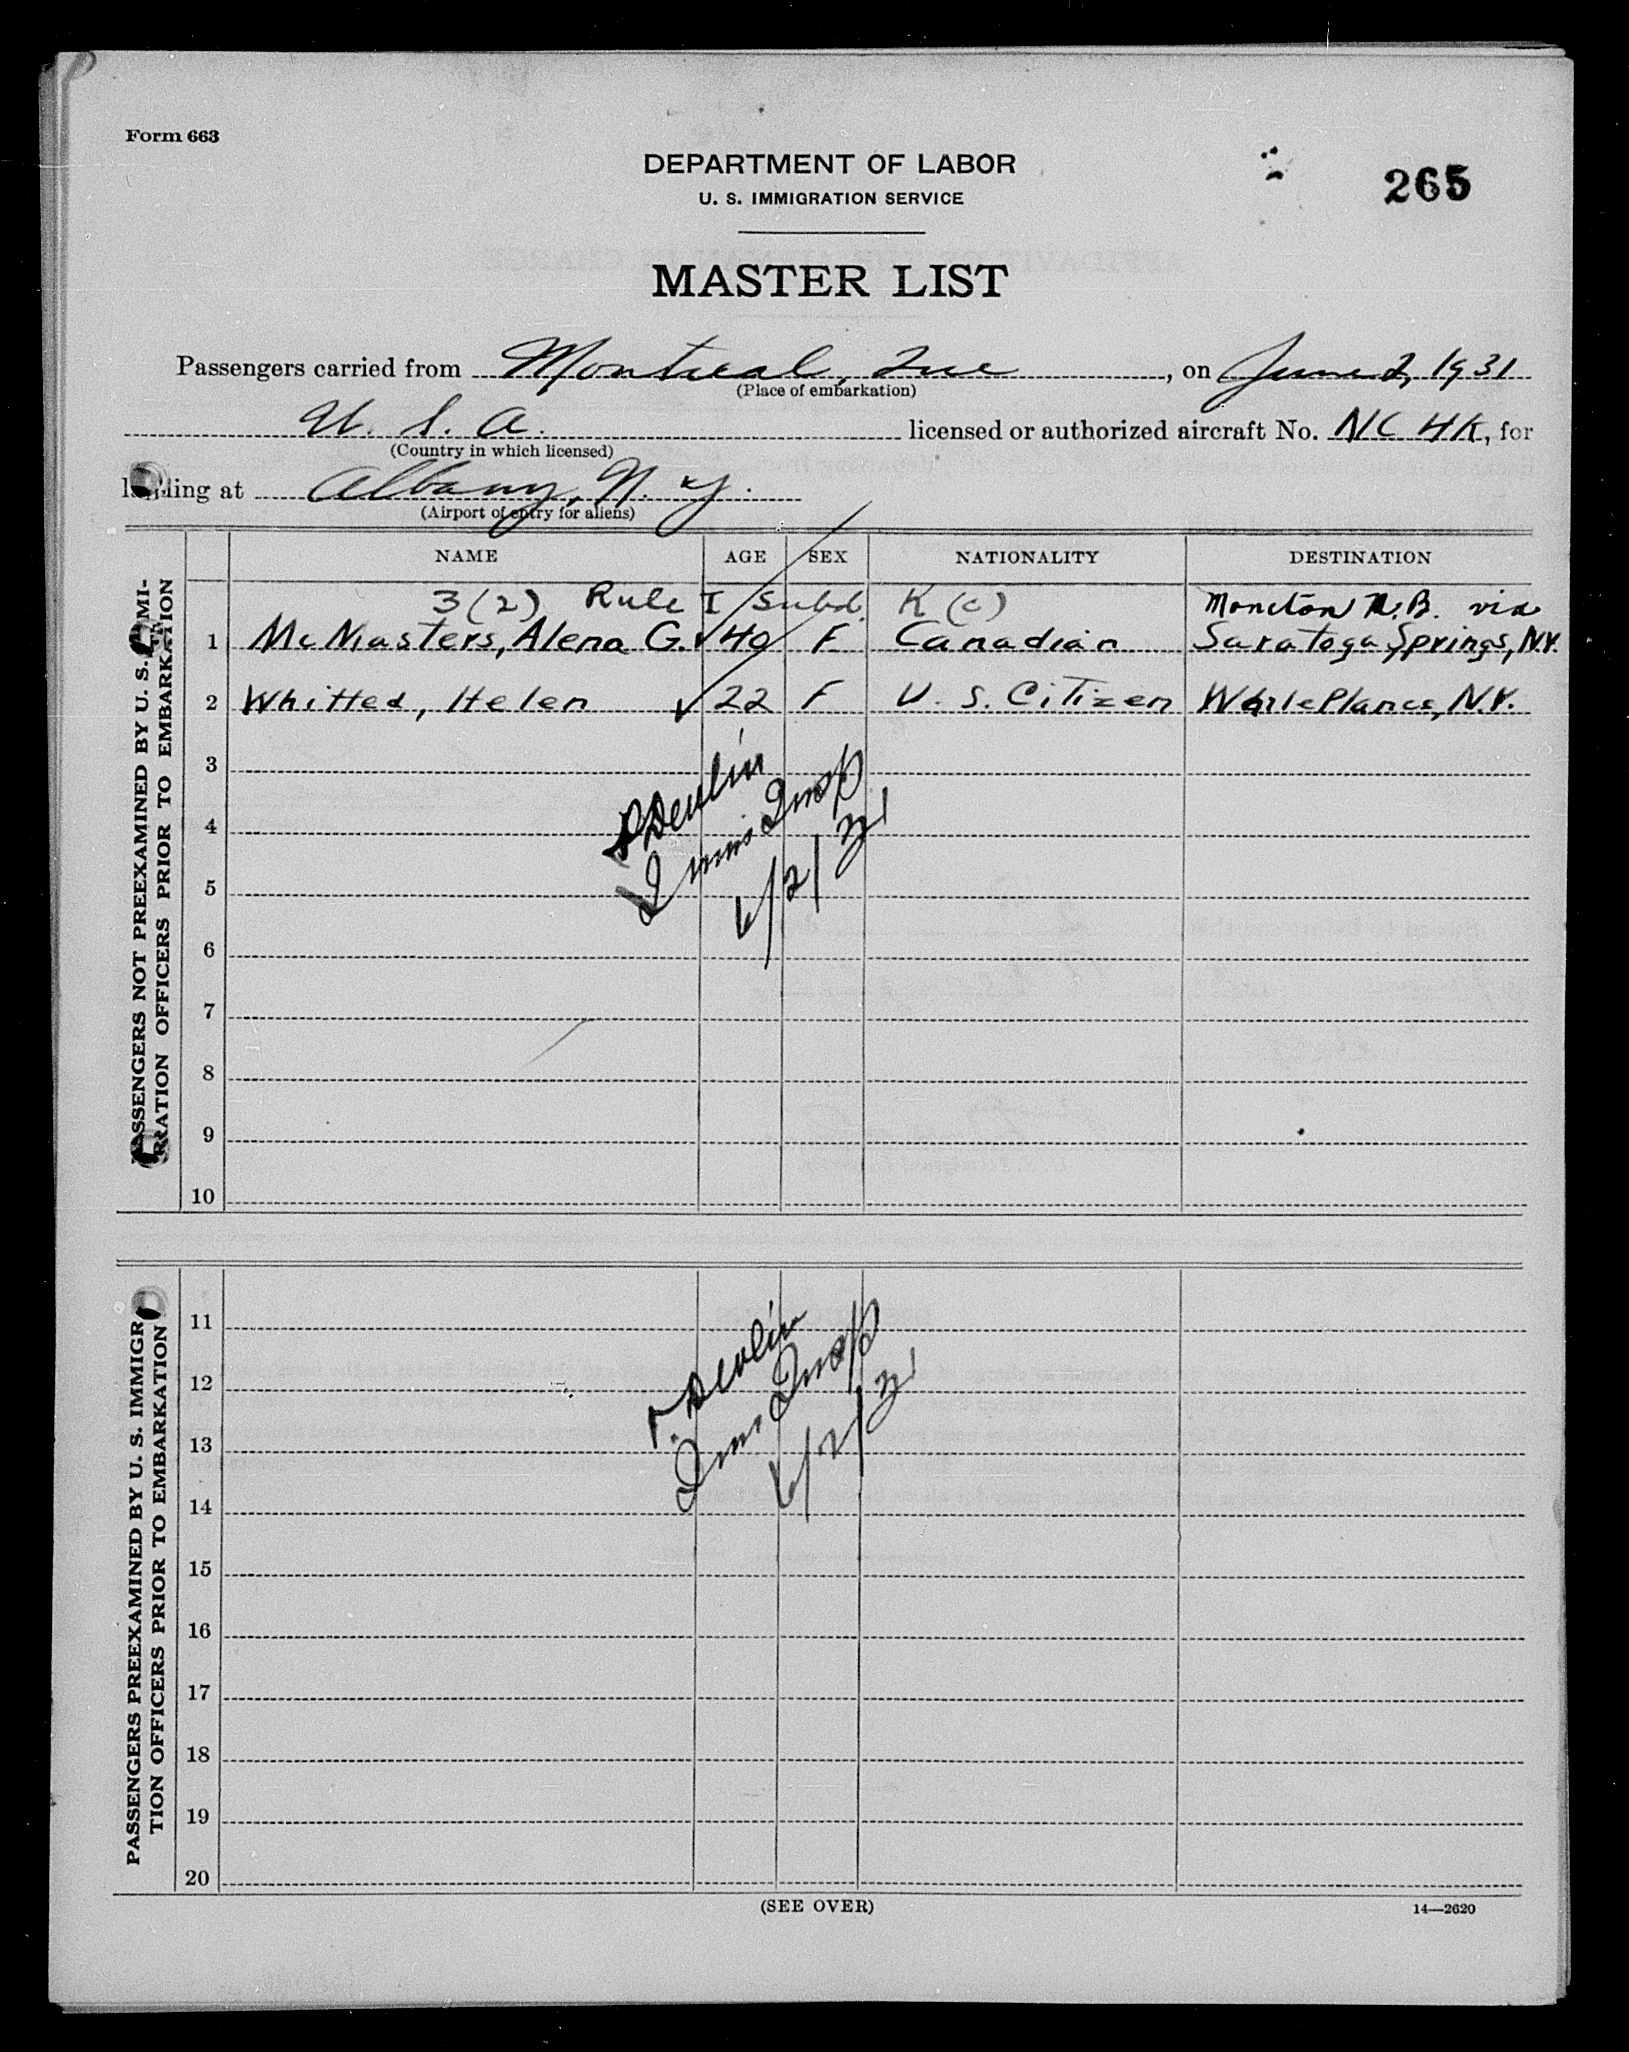 Form 663
DEPARTMENT OF LABOR
U. S. IMMIGRATION SERVICE
265
MASTER LIST
Passengers carried from Montreal, Que, on June 2, 1931
(Place of embarkation)
U. S. A. licensed or authorized aircraft No. NC 4K, for
(Country in which licensed)
landing at Albany, N. Y.
(Airport of entry for aliens)
NAME AGE SEX NATIONALITY DESTINATION
3(2) Rule I Subd. K (c) Moncton N.B. via
1 McMasters, Alena G. 40 F Canadian Saratoga Springs, N.Y.
2 Whitted, Helen 22 F U. S. Citizen N.Y.
3
4
5
6
7
8
9
10
Devlin
Immi Insp
6/2/31
PASSENGERS NOT PREEXAMINED BY U. S. IMMI-
GRATION OFFICERS PRIOR TO EMBARKATION
11
12
13
14
15
16
17
18
19
20
Devlin
Imm Insp
6/2/31
PASSENGERS PREEXAMINED BY U. S. IMMIGRA-
TION OFFICERS PRIOR TO EMBARKATION
(SEE OVER)
14—2620